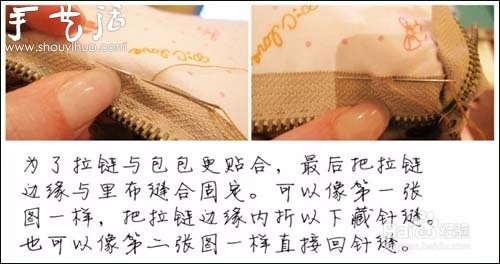 手艺活
www.shouyihuo.com
为了拉链与包包更贴合，最后把拉链
边缘与里布缝合固定。可以像第一张
图一样，把拉链边缘内折以下藏针缝。
也可以像第二张图一样直接回针缝。